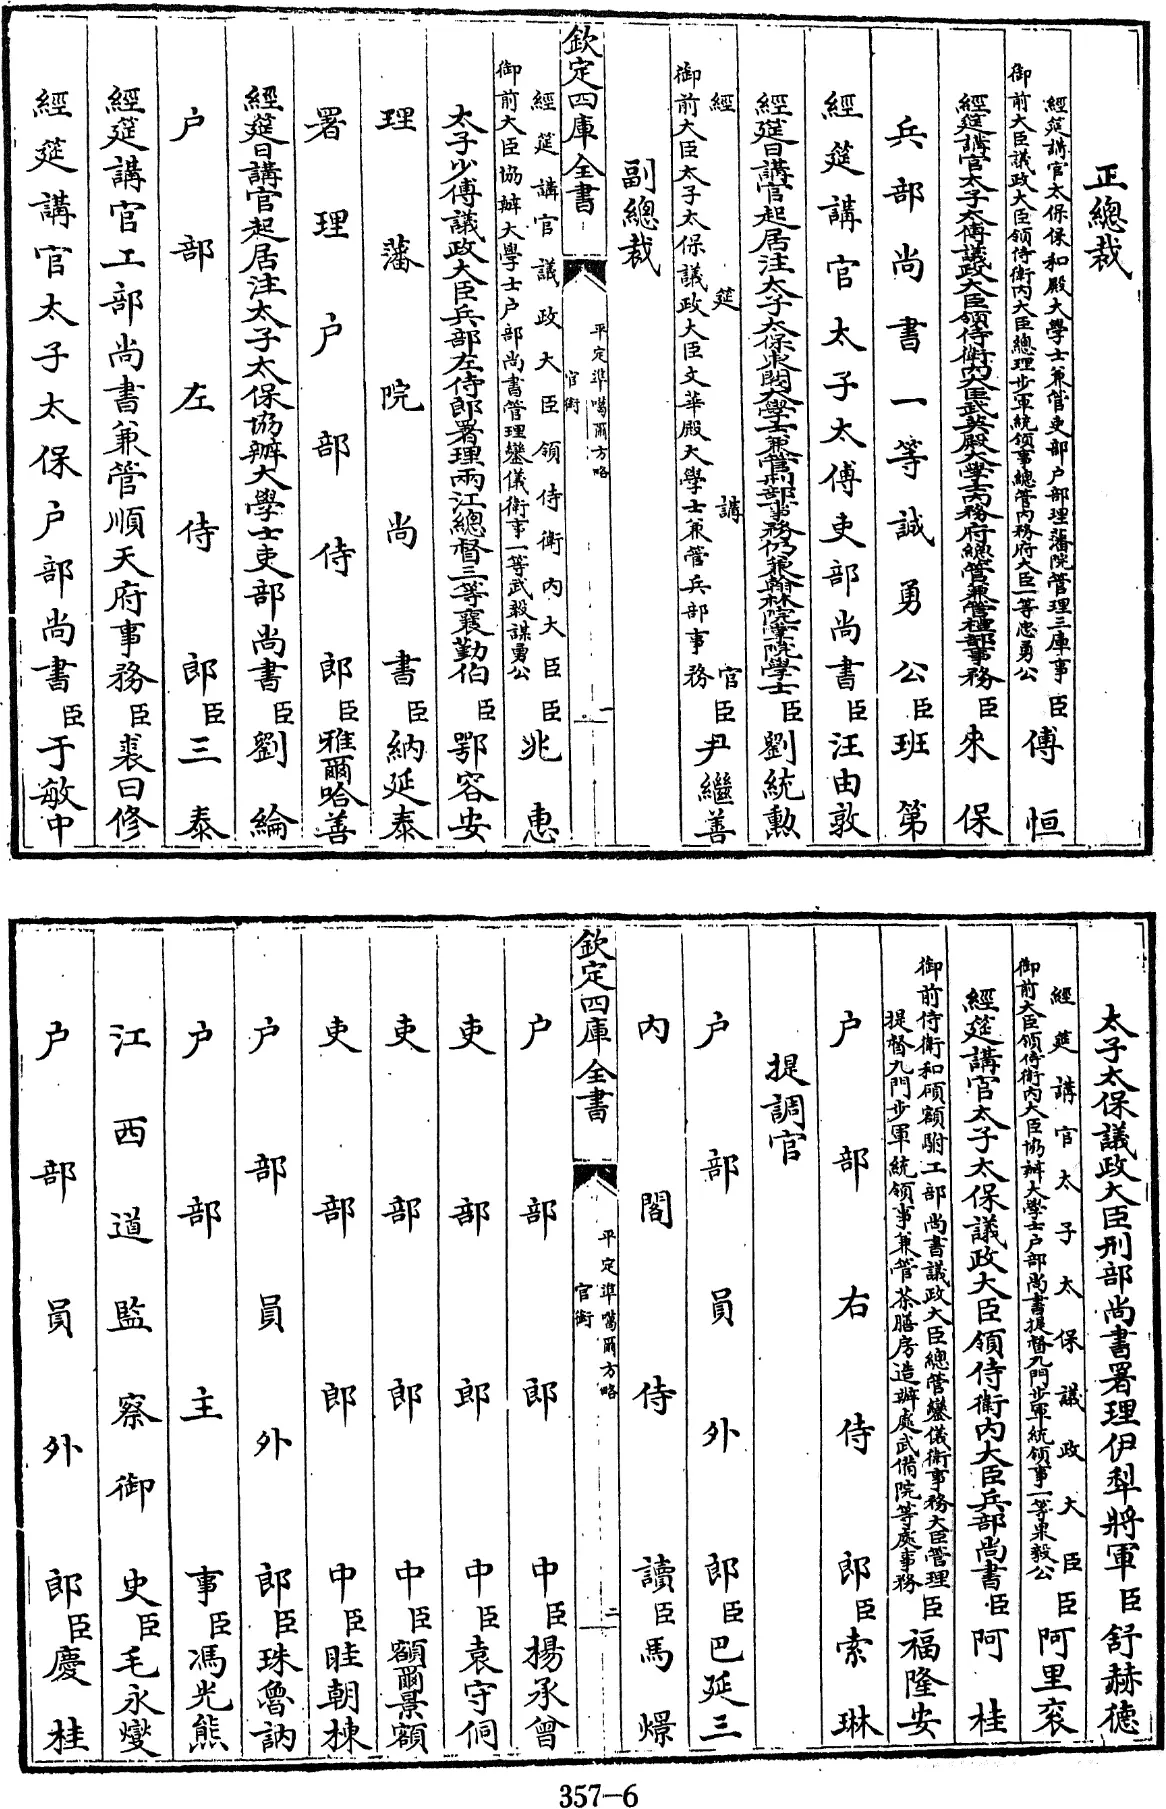 正總裁
經筵講官太保保和殿大學士兼管吏部戶部理藩院管理三庫事
御前大臣議政大臣領侍衛內大臣總理步軍統領事總管內務府大臣一等忠勇公臣傅恒
經筵講官太子太傅議政大臣領侍衛內大臣武英殿大學士內務府總管兼管禮部事務臣來保
兵部尚書一等誠勇公臣班第
經筵講官太子太傅吏部尚書臣汪由敦
經筵日講官起居注太子太保東閣大學士兼管刑部事務仍兼翰林院掌院學士臣劉統勳
經筵講官
御前大臣太子太保議政大臣文華殿大學士兼管兵部事務臣尹繼善
副總裁
欽定四庫全書
平定準噶爾方略
官銜
一
經筵講官議政大臣領侍衛內大臣
御前大臣協辦大學士戶部尚書管理鑾儀衛事一等武毅謀勇公臣兆惠
太子少傅議政大臣兵部左侍郎署理兩江總督三等襄勤伯臣鄂容安
理藩院尚書臣納延泰
署理戶部侍郎臣雅爾哈善
經筵日講官起居注太子太保協辦大學士吏部尚書臣劉綸
戶部左侍郎臣三泰
經筵講官工部尚書兼管順天府事務臣裘曰修
經筵講官太子太保戶部尚書臣于敏中
太子太保議政大臣刑部尚書署理伊犁將軍臣舒赫德
經筵講官太子太保議政大臣
御前大臣領侍衛內大臣協辦大學士戶部尚書提督九門步軍統領事一等果毅公臣阿里袞
經筵講官太子太保議政大臣領侍衛內大臣兵部尚書臣阿桂
御前侍衛和碩額駙工部尚書議政大臣總管鑾儀衛事務大臣管理
提督九門步軍統領事兼管茶膳房造辦處武備院等處事務臣福隆安
戶部右侍郎臣索琳
提調官
戶部員外郎臣巴延三
內閣侍讀臣馬爌
欽定四庫全書
平定準噶爾方略
官銜
二
戶部郎中臣楊承曾
吏部郎中臣袁守侗
吏部郎中臣額爾景額
吏部郎中臣眭朝棟
戶部員外郎臣珠魯訥
戶部主事臣馮光熊
江西道監察御史臣毛永燮
戶部員外郎臣慶桂
357-6